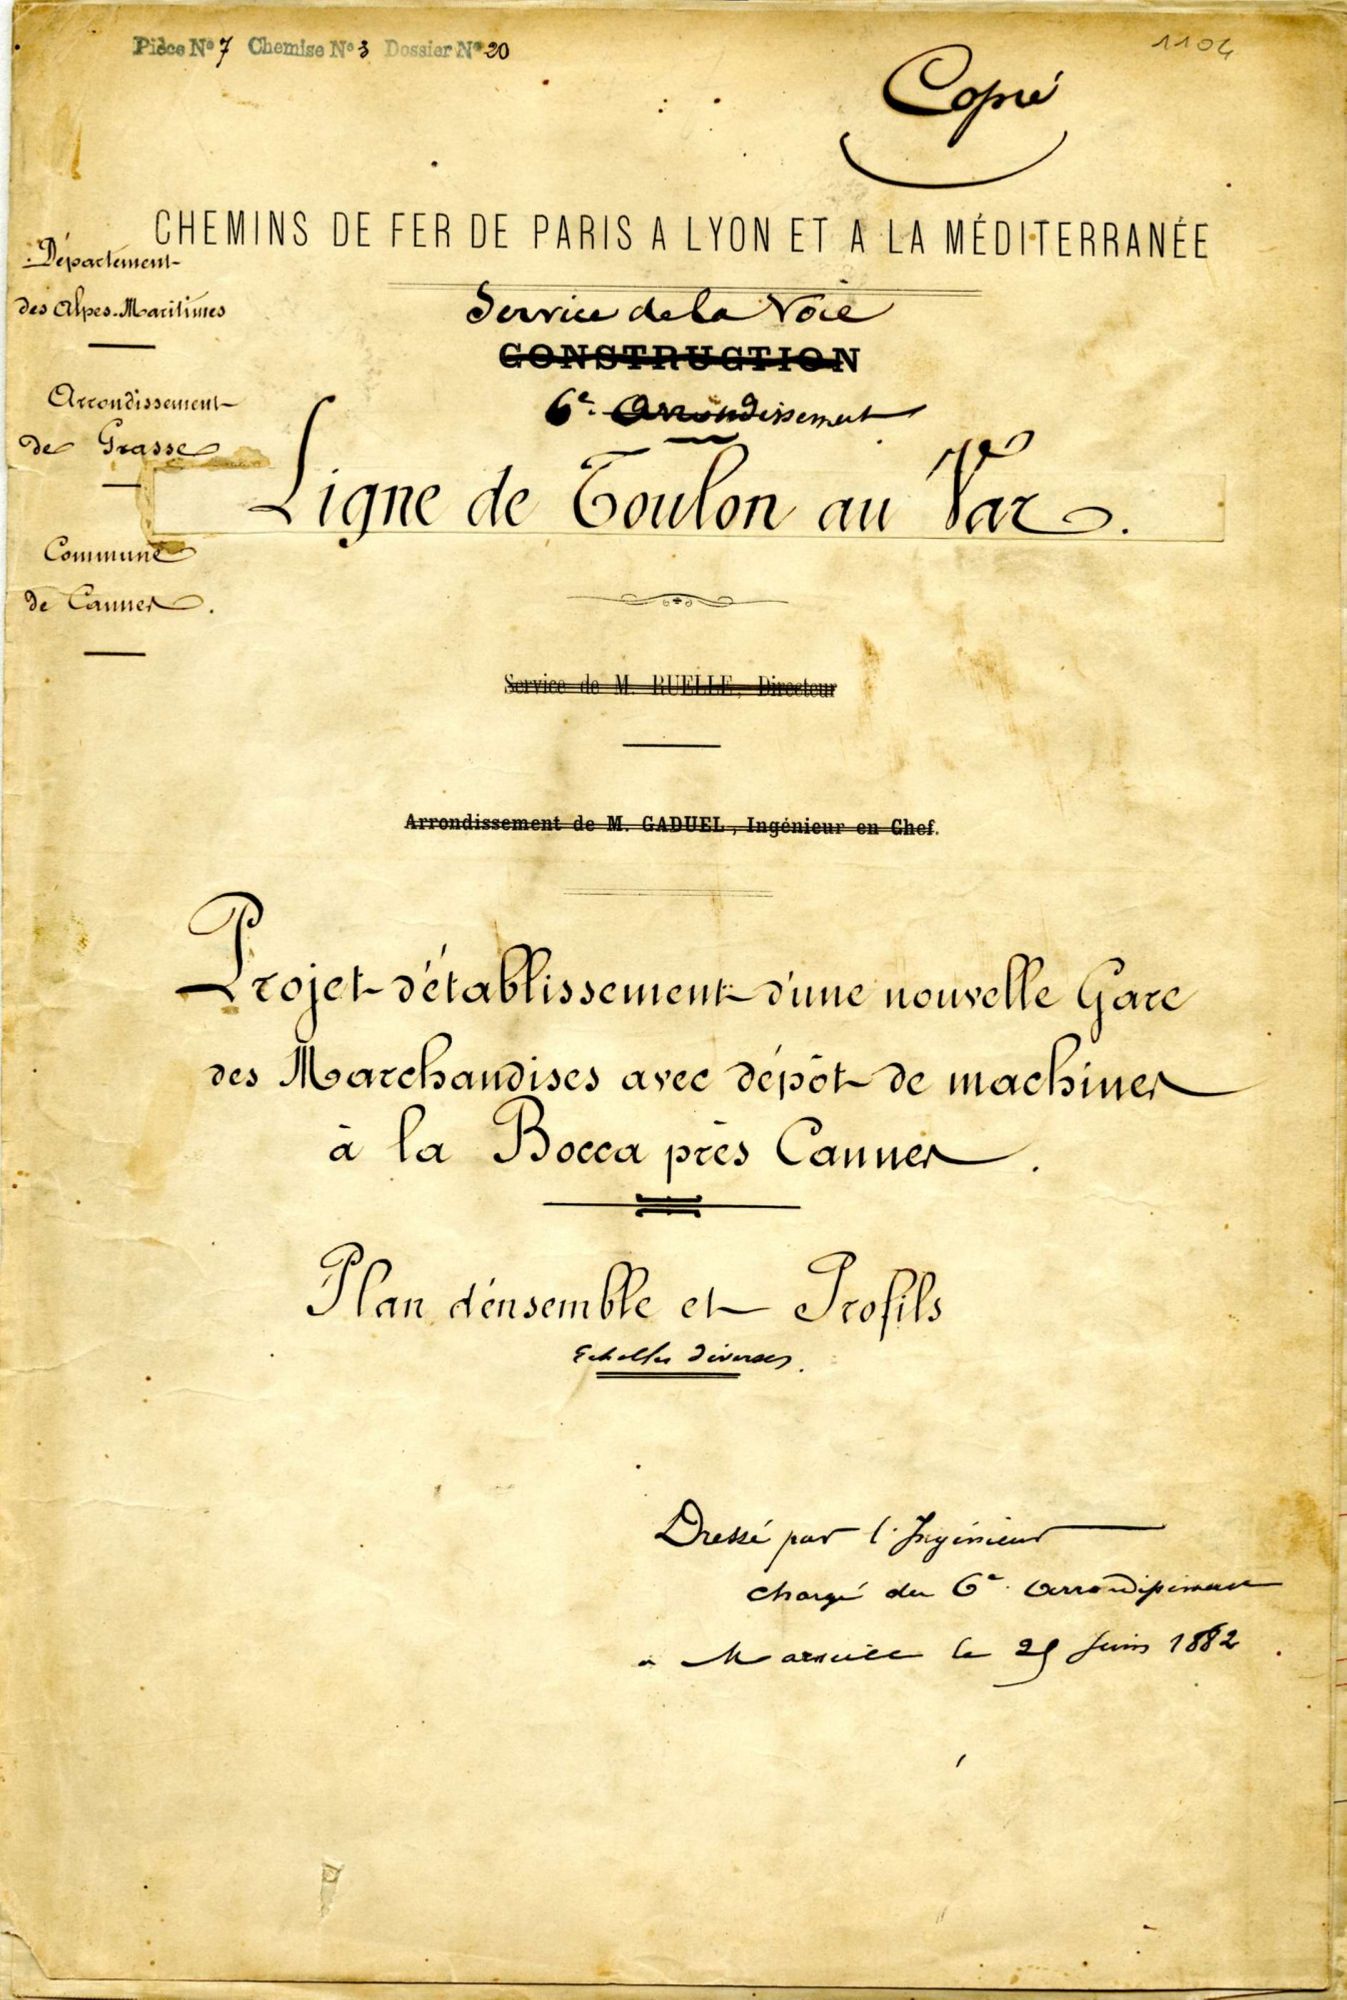 Pièce N° 7 Chemise N° 3 Dossier N° 20
1104
Copié
CHEMINS DE FER DE PARIS A LYON ET A LA MÉDITERRANÉE
Département
des Alpes-Maritimes
Arrondissement
de Grasse
Commune
de Cannes.
Service de la Voie
CONSTRUCTION
6e Arrondissement
Ligne de Toulon au Var.
Service de M. RUELLE, Directeur
Arrondissement de M. GADUEL, Ingénieur en Chef.
Projet d'établissement d'une nouvelle Gare
des Marchandises avec dépôt de machines
à la Bocca près Cannes.
Plan d'ensemble et Profils
Echelles diverses.
Dressé par l'Ingénieur
chargé du 6e Arrondissement
à Marseille le 25 Juin 1882